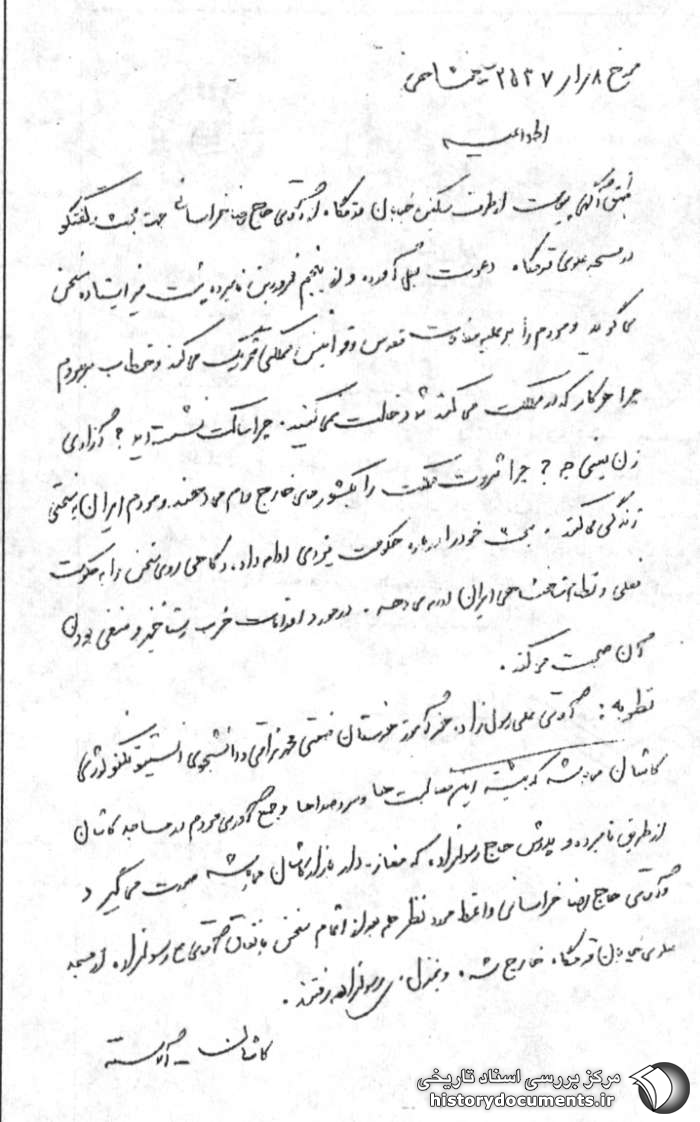 مورخ ۸/۱/۲۵۳۷ شاهنشاهی
اطلاعیه
طبق آگهی پیوست از طرف ساکنین خیابان قدمگاه از آقای حاج رضا خراسانی جهت بحث و گفتگو
در مسجد علوی قدمگاه دعوت بعمل آورده و از پنجم فروردین نامبرده پشت میز ایستاده سخن
می گوید و مردم را بر علیه مقامات مقدس و قوانین مملکتی تحریک می کند و خطاب بمردم
چرا هر کار که در مملکت می کنند شما دخالت نمی کنید. چرا ساکت نشسته اید؟ آزادی
زن یعنی چه؟ چرا ثروت مملکت را بکشورهای خارج وام می دهند و مردم ایران بسختی
زندگی می کنند. بحث خود را درباره حکومت یزیدی ادامه داد. و گاهی روی سخن را به حکومت
فعلی و نظام شاهنشاهی ایران ادامه می دهد. در مورد اقدامات حزب رستاخیز و منفی بودن
آن صحبت می کند.
نظریه: آقای علی رسول زاده هنرآموز هنرستان صنعتی محمد نراقی و دانشجوی انستیتو تکنولوژی
کاشان میباشد که بیشتر این فعالیت ها و سر و صداها و جمع آوری مردم در مساجد کاشان
از طریق نامبرده و پدرش حاج رسولزاده که مغازه دار بازار کاشان میباشد صورت می گیرد و
آقای حاج رضا خراسانی واعظ مورد نظر هم بعد از اتمام سخن باتفاق آقای رسولزاده از مسجد
علوی خیابان قدمگاه خارج شده و بمنزل رسولزاده رفتند.
کاشان -
مرکز بررسی اسناد تاریخی
historydocuments.ir